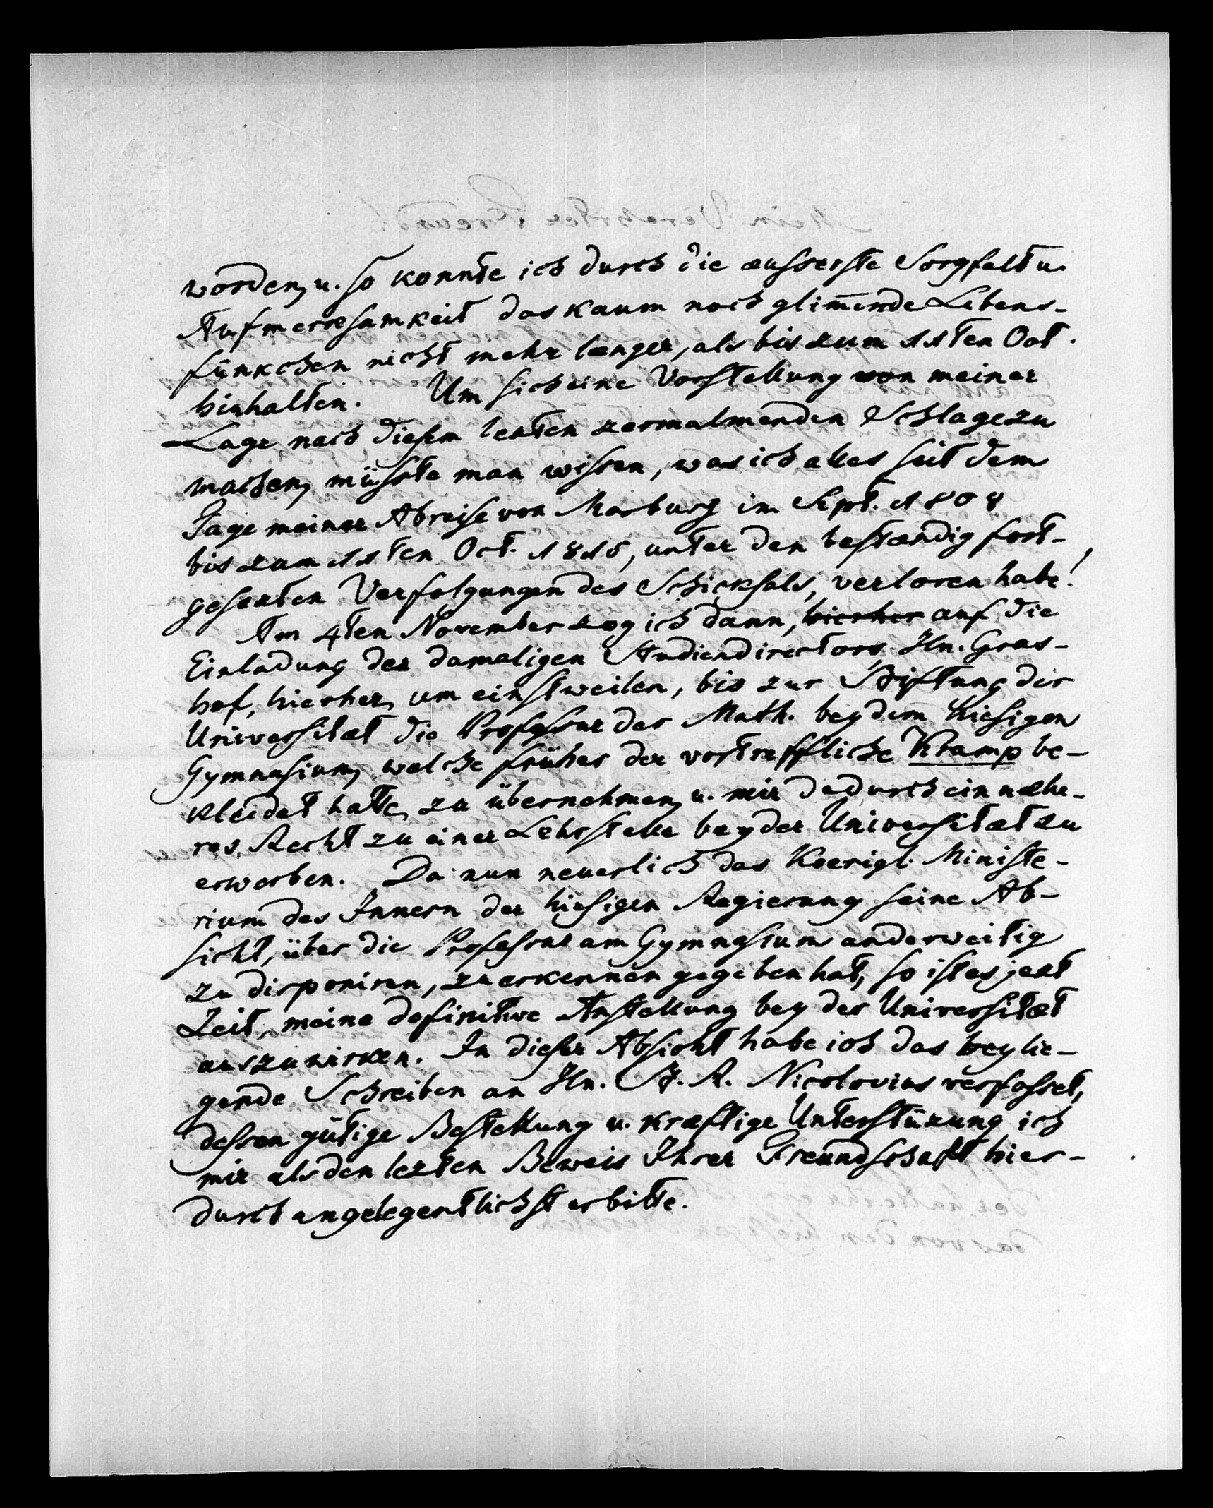 worden, u. so konnte ich durch die æusserste Sorgfalt u.
Aufmerksamkeit das kaum noch glim̅ende Lebens-
fünkchen nicht mehr længer, als bis zum 11ten Oct.
hinhalten. Um sich eine Vorstellung von meiner
Lage nach diesem lezten zermalmenden Schlage zu
machen, müsste man wissen, was ich alles seit dem
Tage meiner Abreise von Marburg im Sept. 1808
bis zum 11ten Oct. 1815, unter den bestændig fort-
gesezten Verfolgungen des Schicksals, verloren habe!
Am 4ten November zog ich dann, hierher auf die
Einladung des damaligen Studiendirectors Hn. Gras-
hof, hierher, um einstweilen, bis zur Stiftung der
Universitæt die Professur der Math. bey dem hiesigen
Gymnasium, welche früher der vortreffliche Kramp be-
kleidet hatte, zu übernehmen, u. mir dadurch ein næhe-
res Recht zu einer Lehrstelle bey der Universitæt zu
erwerben. Da nun neuerlich das Koenigl. Ministe-
rium des Innern der hiesigen Regierung seine Ab-
sicht, über die Professur am Gymnasium anderweitig
zu disponiren, zu erkennen gegeben hat, so ist es jezt
Zeit, meine definitive Anstellung bey der Universitæt
auszuwirken. In dieser Absicht habe ich das beylie-
gende Schreiben an Hn. St. R. Nicolovius verfasset,
dessen gütige Bestellung u. kræftige Unterstüzung ich
mir als den lezten Beweis Ihrer Freundschaft hier-
durch angelegentlichst erbitte.